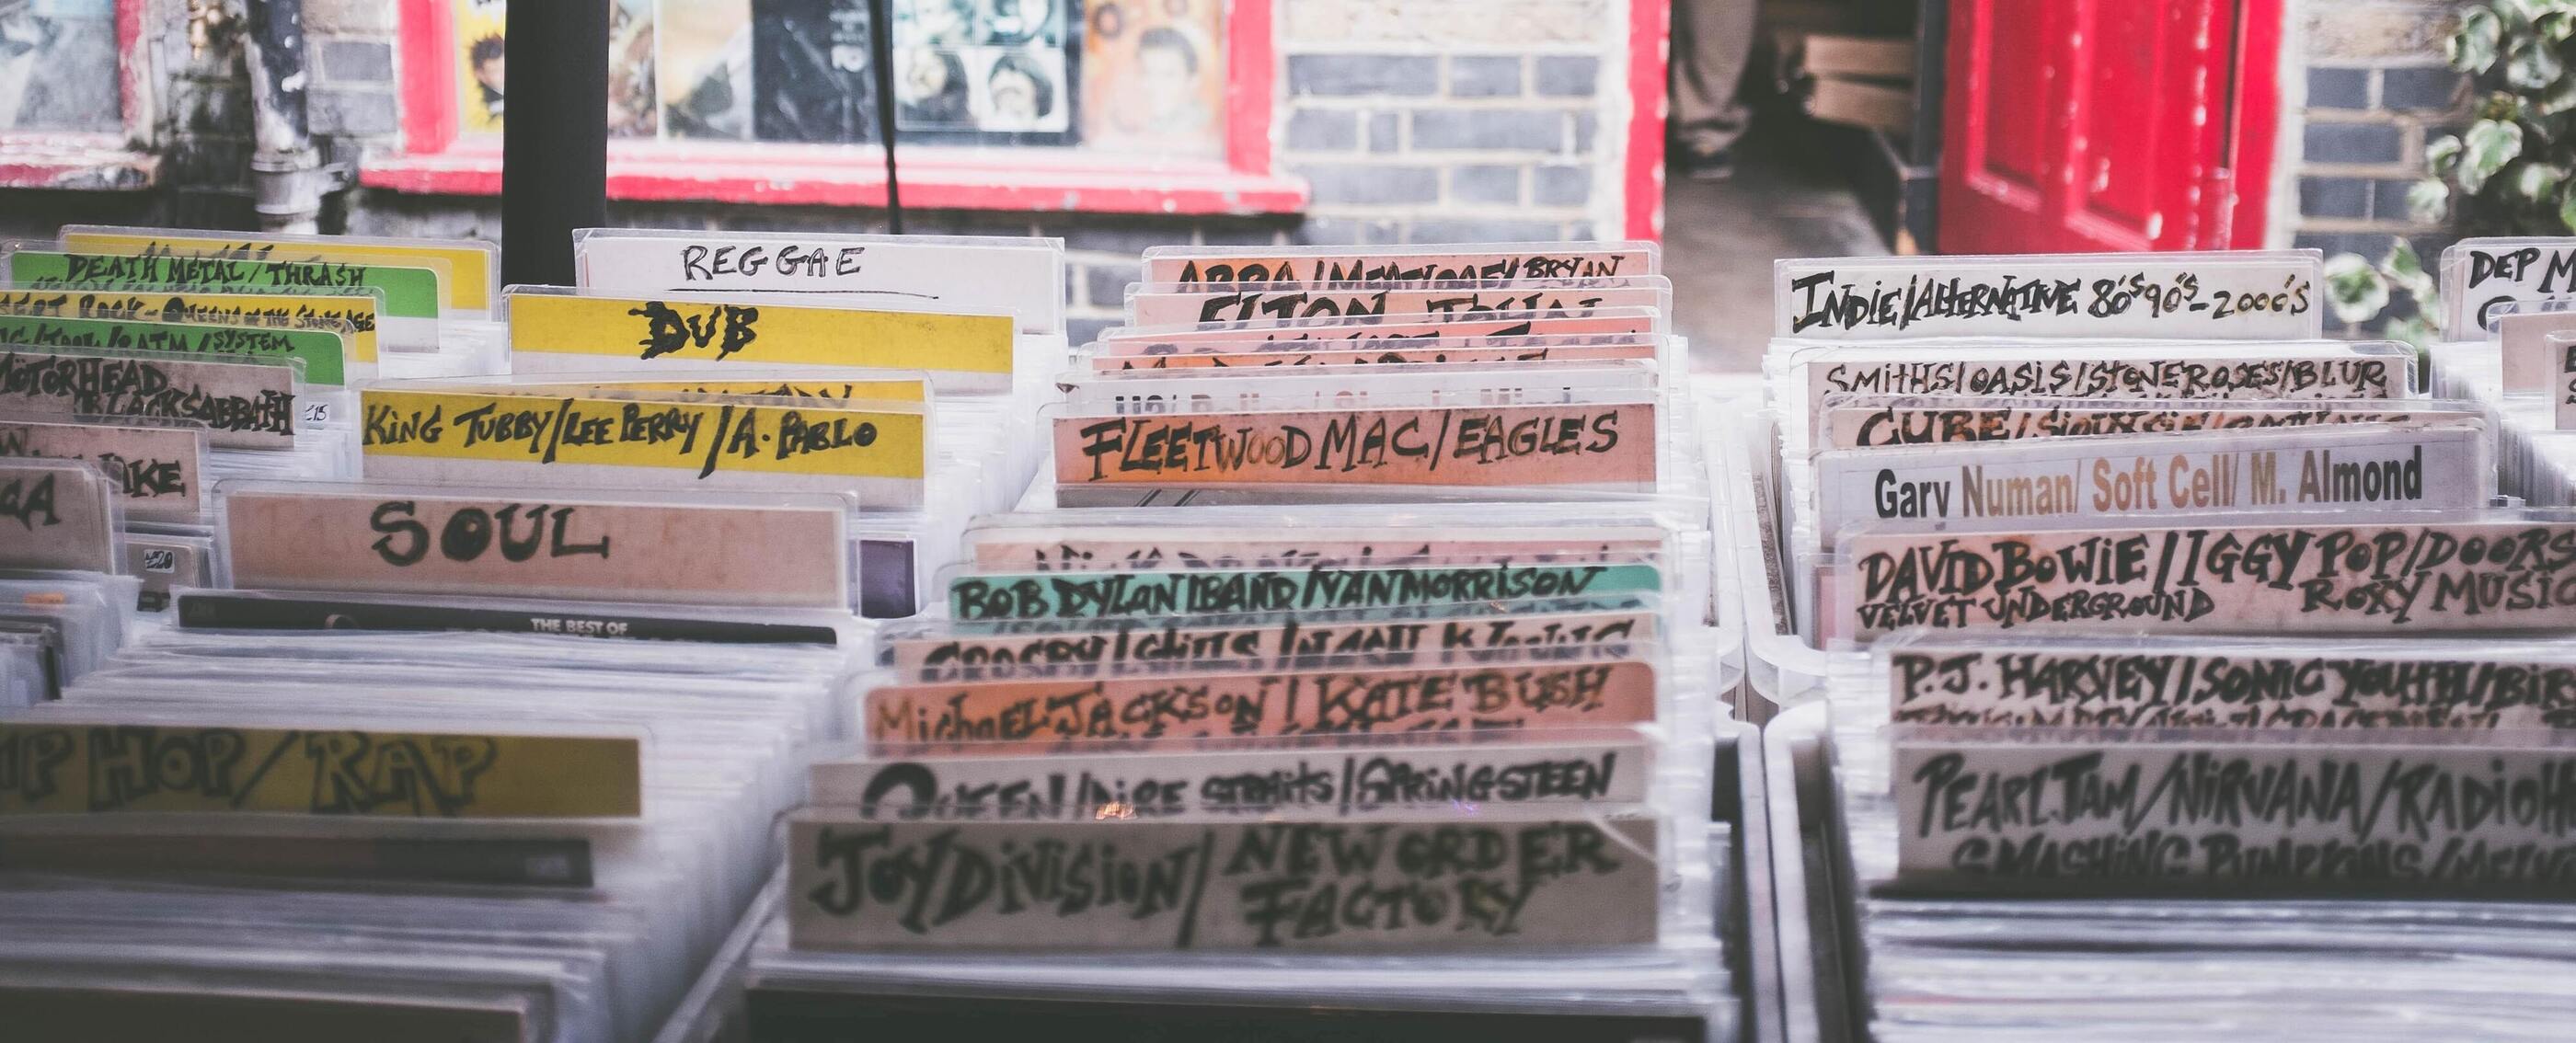 DEATH METAL/THRASH
ROCK-QUEENS OF THE STONE AGE
/TOOL/RATM/SYSTEM
MOTORHEAD
BLACK SABBATH
£15
£20
SOUL
THE BEST OF
HOP/RAP
REGGAE
DUB
KING TUBBY/LEE PERRY/A.PABLO
ABBA/ /BRYAN
ELTON JOHN
FLEETWOOD MAC/EAGLES
BOB DYLAN/BAND/VAN MORRISON
CROSBY/ /NEIL YOUNG
MichaEL JACKSON/KATE BUSH
QUEEN/DIRE STRAITS/SPRINGSTEEN
JOY DIVISION/NEW ORDER
FACTORY
INDIE/ALTERNATIVE 80'S 90'S-2000'S
SMITHS/OASIS/STONE ROSES/BLUR
CURE/SIOUXSIE/
Gary Numan/ Soft Cell/ M. Almond
DAVID BOWIE/IGGY POP/DOORS
VELVET UNDERGROUND ROXY MUSIC
P.J. HARVEY/SONIC YOUTH/
PEARL JAM/NIRVANA/
SMASHING PUMPKINS/
DEP